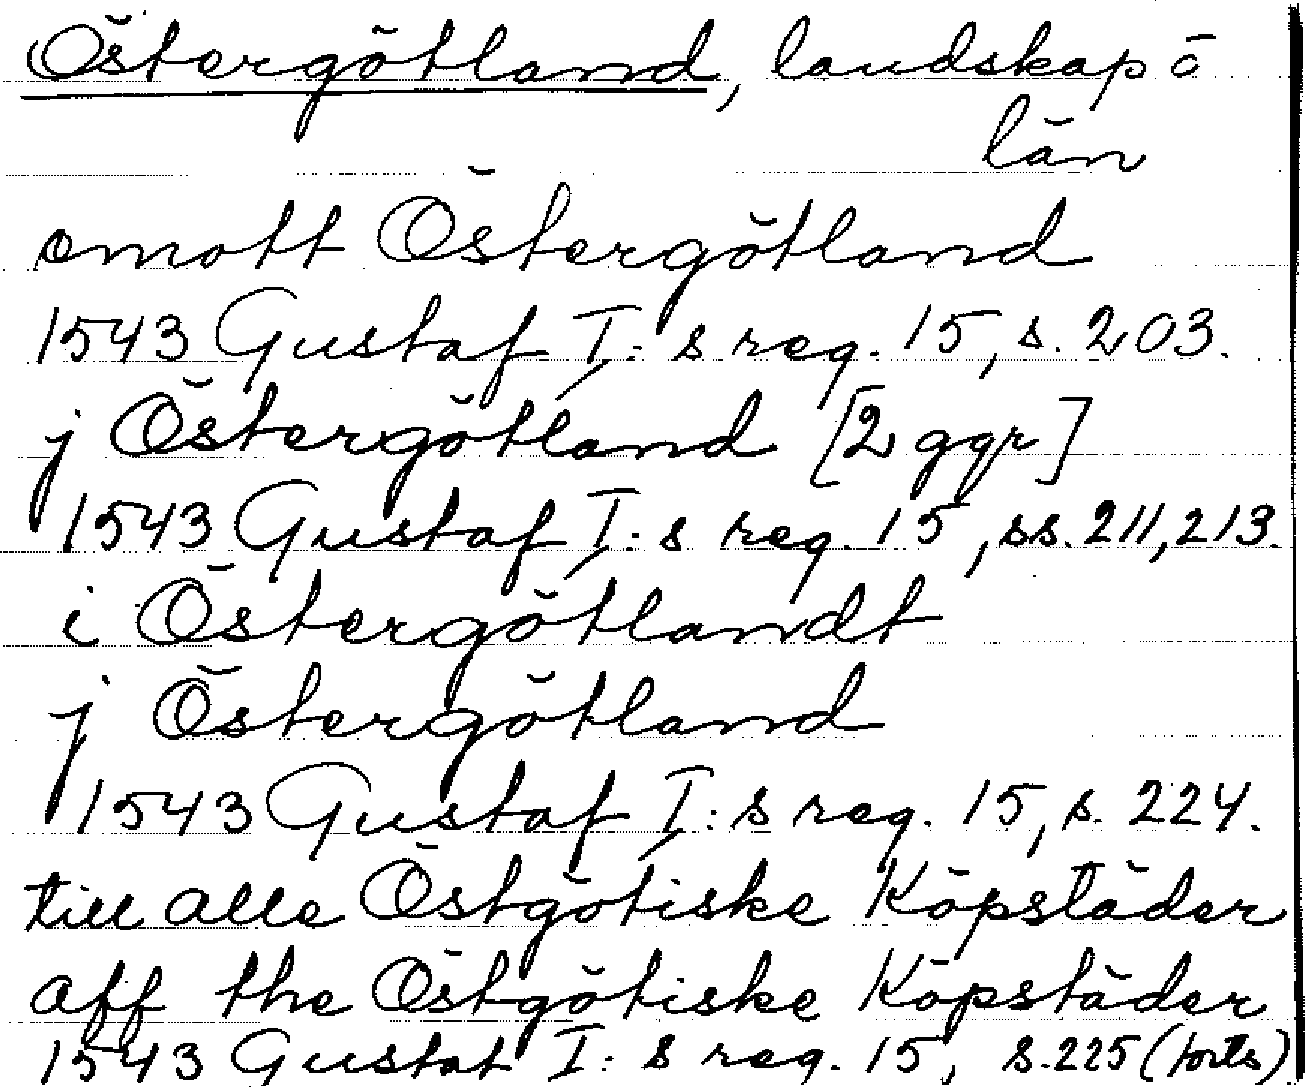 Östergötland, landskap o
län
omott Östergötland
1543 Gustaf I:s reg. 15, s. 203.
j Östergötland [2 ggr]
1543 Gustaf I:s reg. 15, ss. 211, 213.
i Östergötlandt
j Östergötland
1543 Gustaf I:s reg. 15, s. 224.
till alle Östgötiske Köpstäder
aff the Östgötiske Köpstäder
1543 Gustaf I:s reg. 15, s. 225 (forts)